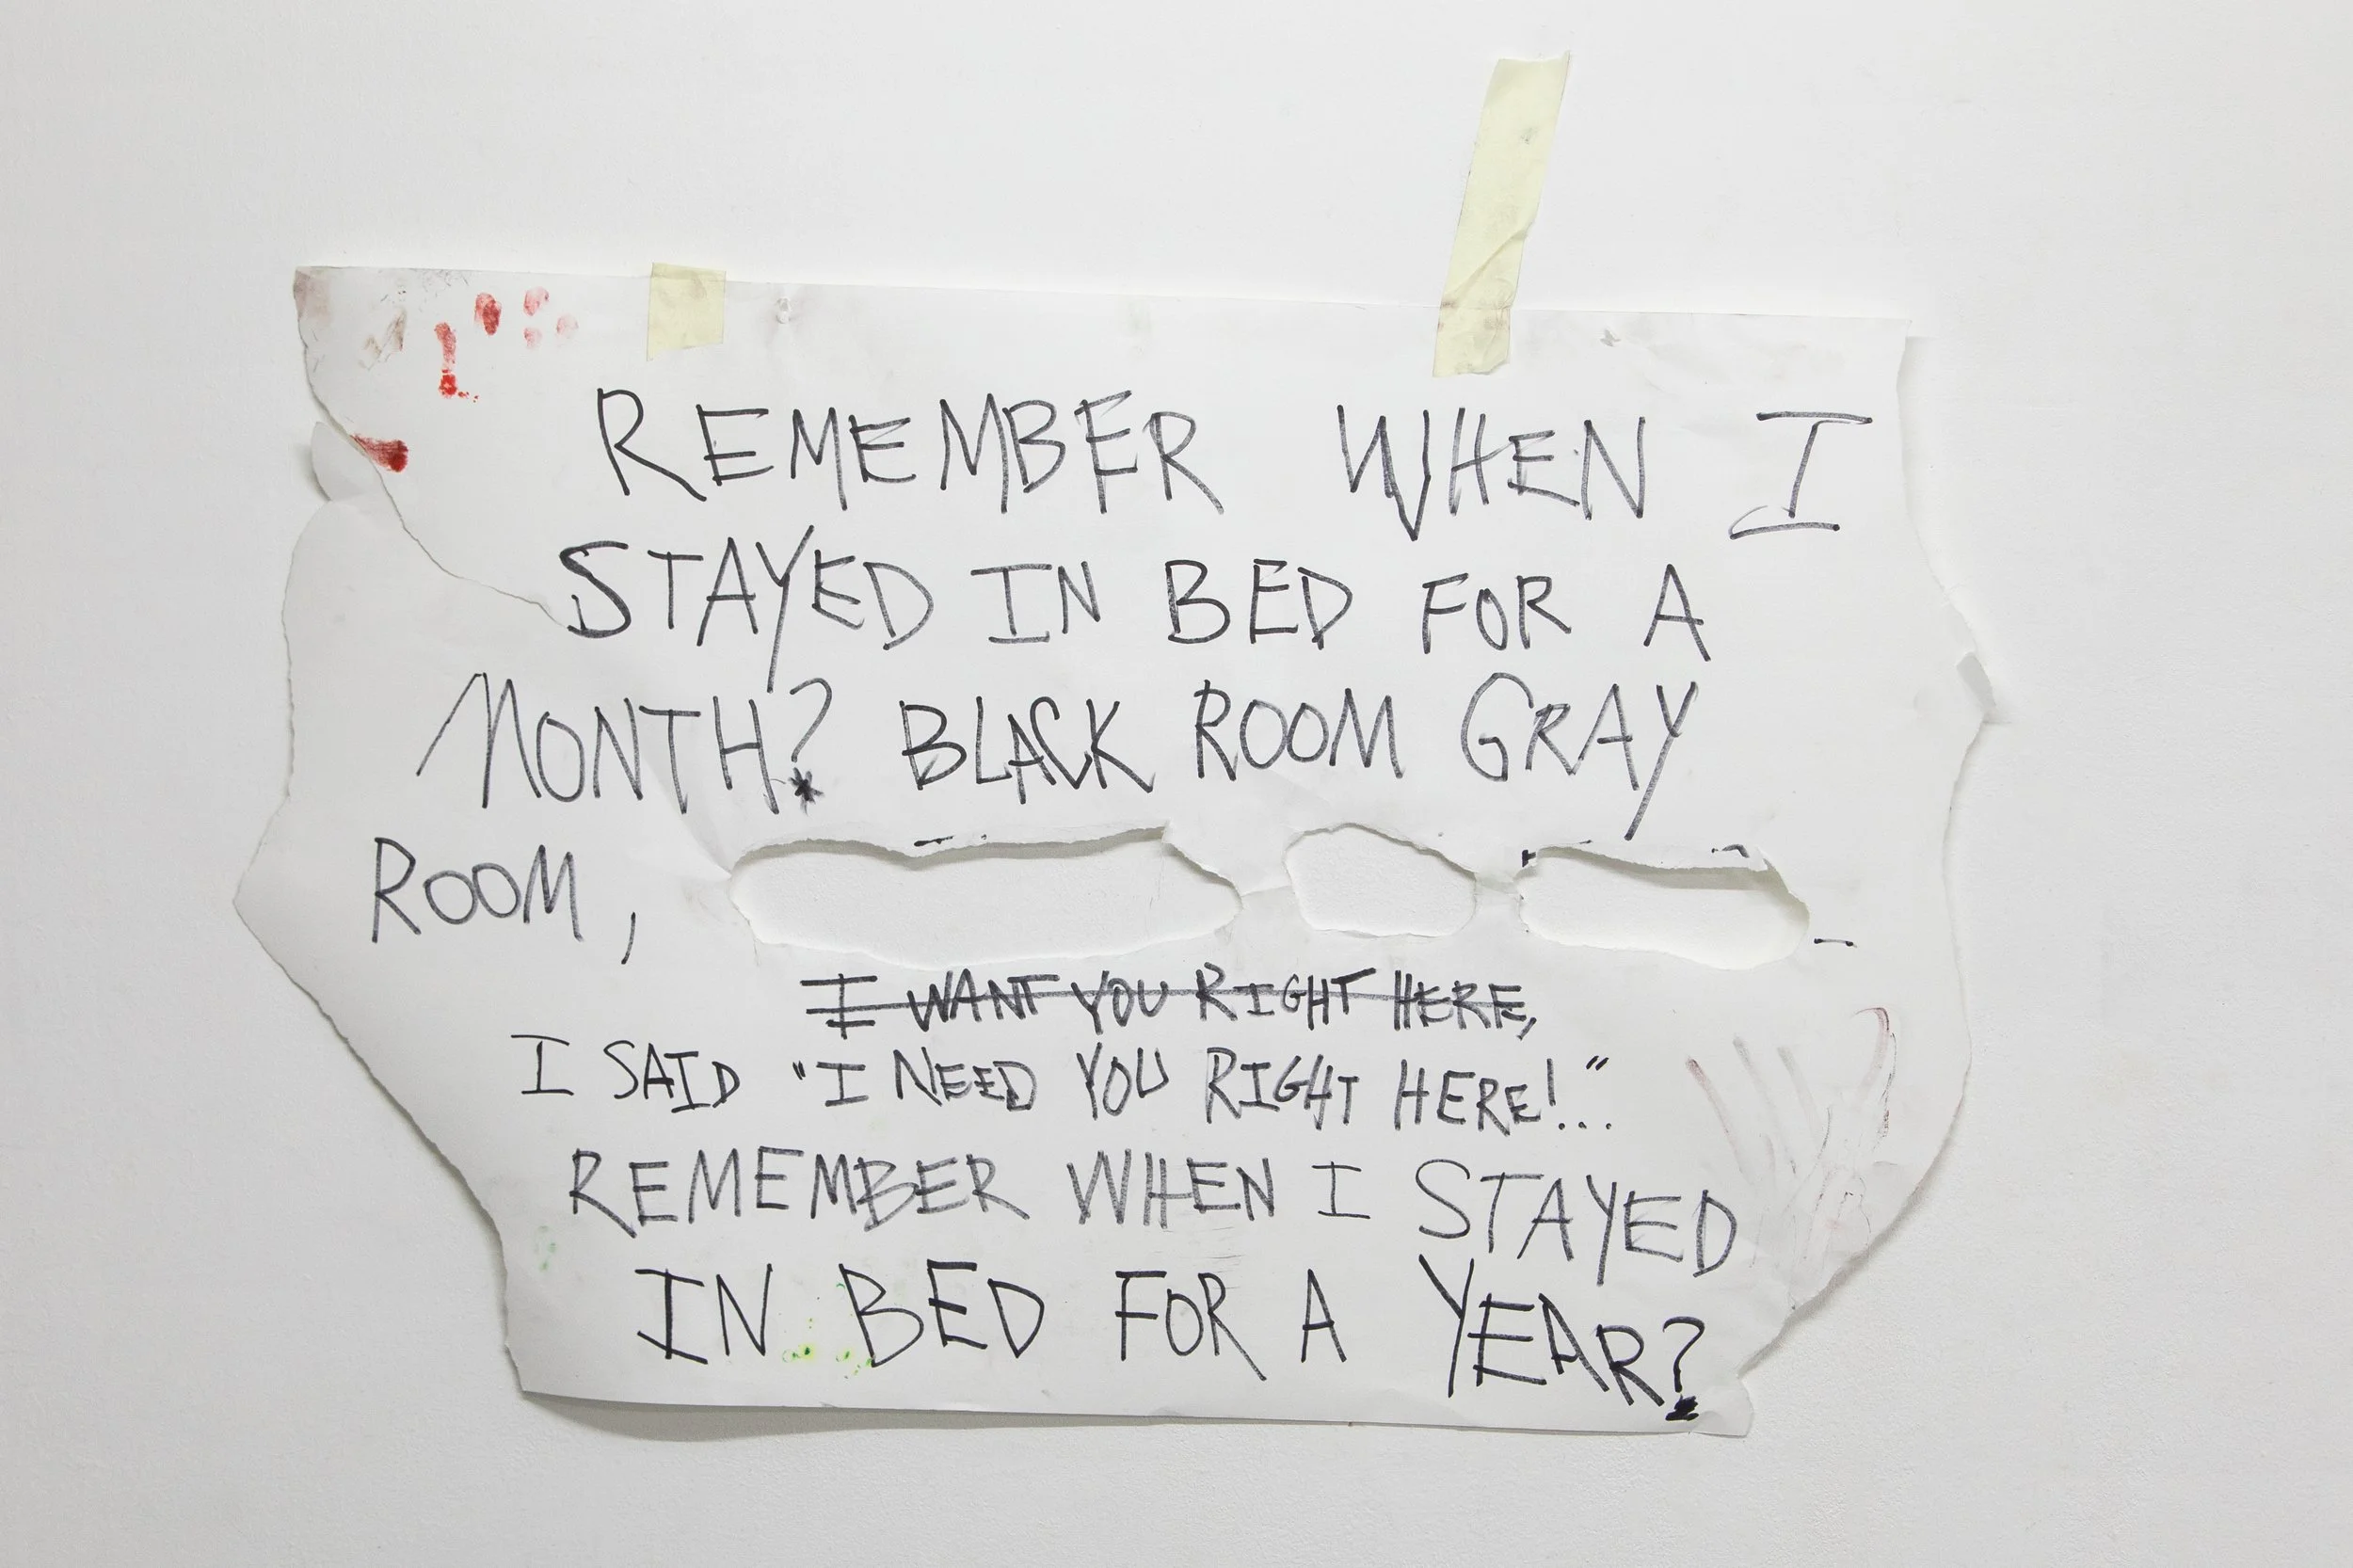 REMEMBER WHEN I
STAYED IN BED FOR A
MONTH? BLACK ROOM GRAY
ROOM,
I WANT YOU RIGHT HERE,
I SAID "I NEED YOU RIGHT HERE!..."
REMEMBER WHEN I STAYED
IN BED FOR A YEAR?